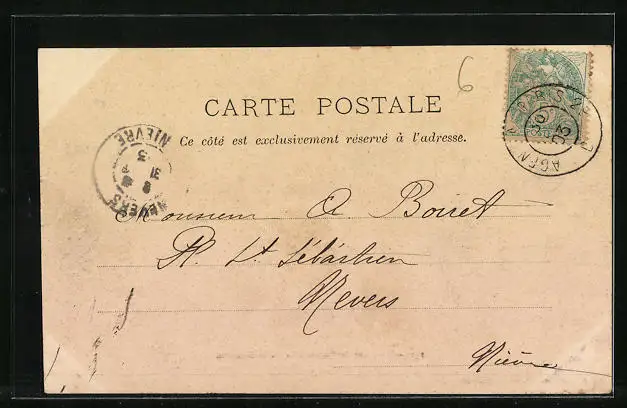 6
CARTE POSTALE
Ce côté est exclusivement réservé à l'adresse.
PARIS
AGEN
30
03
NEVERS
NIEVRE
31
8
3
Monsieur A Boiret
Pl. St Sébastien
Nevers
Nièvre